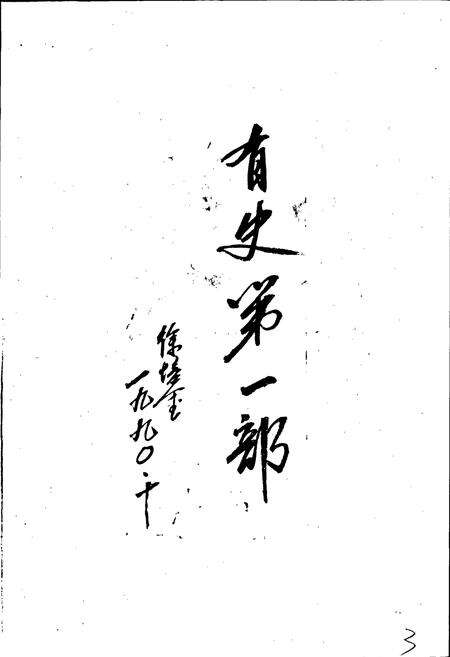 有史第一部
徐培金
一九九〇·十
3